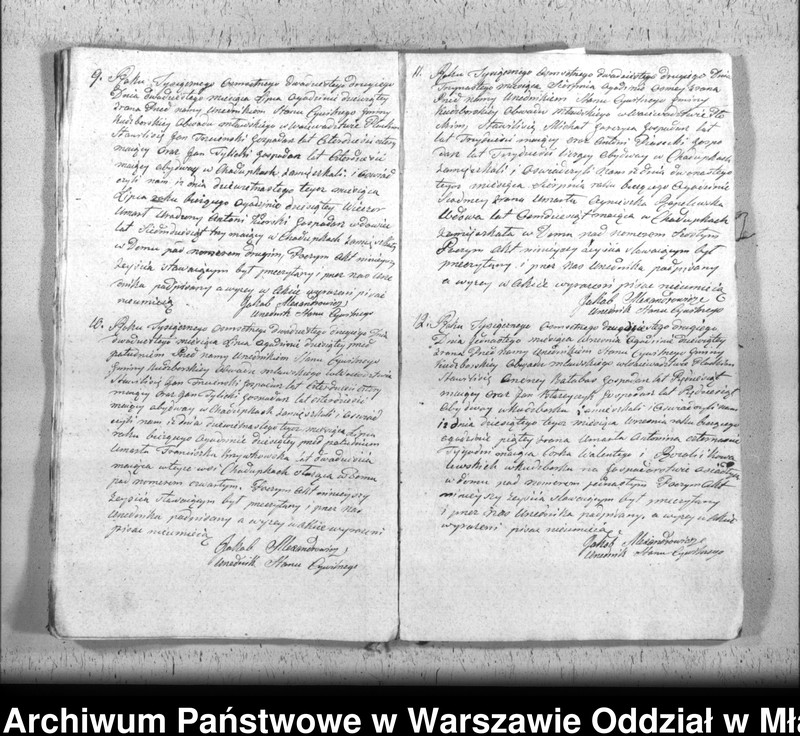 9. Roku Tysiącznego Osmsetnego dwudziestego drugiego
Dnia dwudziestego miesiąca Lipca o godzinie dziesiątey
zrana Przed namy Urzednikiem Stanu Cywilnego Gminy
Kudzborskiy Obwodu Mławskiego w Woiewodztwie Płockim
Stawili się Jan gospodarz lat Czterdzieści cztery
maiący oraz Jan Tyliski gospodarz lat Czterdzieści
maiący obydwaj w Chodupkach zamięszkali i Oswiad
czyli nam iż dnia dziewiętnastego tegoz miesiąca
Lipca roku biezącego o godzinie dziesiątey Wieczor
Umarł Antoni gospodarz wdowiec
lat Siedmdziesiąt trzy maiący w Chadupkach zamięszkały
w Domu pod numerem drugim, Poczym Akt niniejszy
zeyscia stawaiącym był przeczytany i przez nas Urze
dnika podpisany a wyrzy w akcie wyrazeni pisac
nieumieią
Jakob Alexandrowicz
Urzednik Stanu Cywilnego
10. Roku Tysiącznego Osmsetnego dwudziestego drugiego Dnia
dwudziestego miesiąca Lipca o godzinie dziesiątey przed
południem Przed namy Urzednikiem Stanu Cywilnego
Gminy Kudzborskiy Obwodu Mławskiego
Stawili się Jan gospodarz lat Czterdzieści cztery
maiący oraz Jan Tyliski gospodarz lat czterdzieści
maiący obydwaj w Chadupkach zamięszkali i Oswiad
czyli nam iż dnia dziewiętnastego tegoz miesiąca Lipca
roku biezącego o godzinie dziesiątey przed południem
Umarła Franciszka lat dwadzieścia
maiąca w teyze wsi Chadupkach w Domu
pod numerem czwartym. Poczym Akt niniejszy
zeyscia stawaiącym był przeczytany i przez nas
Urzednika podpisany a wyrzy w akcie wyrazeni
pisac nieumieią
Jakob Alexandrowicz
Urzednik Stanu Cywilnego
11. Roku Tysiącznego Osmsetnego dwudziestego drugiego Dnia
Trzynastego miesiąca Sierpnia o godzinie osmey zrana
Przed namy Urzednikiem Stanu Cywilnego Gminy
Kudzborskiy Obwodu Mławskiego w Woiewodztwie Pło
ckim, Stawili się Michał gospodarz lat
lat Trzydzieści maiący oraz Antoni Piasecki gospo
darz lat Trzydzieści liczący Obydwaj w Chadupkach
zamięszkali i Oswiadczyli nam iż dnia dwonastego
tegoz miesiąca Sierpnia roku biezącego o godzinie
siodmey zrana Umarła Agnieszka
Wdowa lat Osmdziesiąt maiąca w Chadupkach
zamięszkała w Domu pod numerem Szostym
Poczym Akt niniejszy zeyscia stawaiącym był
przeczytany i przez nas Urzednika podpisany
a wyrzy w Akcie wyrazeni pisac nieumieią
Jakob Alexandrowicz
Urzednik Stanu Cywilnego
12. Roku Tysiącznego Osmsetnego dwudziestego drugiego
Dnia miesiąca Września o godzinie dziesiątey
zrana Przed namy Urzednikiem Stanu Cywilnego Gminy
Kudzborskiy Obwodu Mławskiego w Woiewodztwie Płockim
Stawili się Andrzey gospodarz lat Pięćdziesiąt
maiący oraz Jan gospodarz lat Pięćdziesiąt
Obydwaj w Kudzborsku zamięszkali i Oswiadczyli nam
iż dnia dziesiątego tegoz miesiąca Września roku biezącego
o godzinie piątey zrana Umarła Antonina czternascie
Tygodni maiąca corka Walentego i
w Kudzborku na gospodarstwie
w domu pod numerem Poczym Akt
niniejszy zeyscia stawaiącym był przeczytany
i przez nas Urzednika podpisany, a wyrzy w akcie
wyrazeni pisac nieumieią
Jakob Alexandrowicz
Urzednik Stanu Cywilnego
Archiwum Państwowe w Warszawie Oddział w Mła